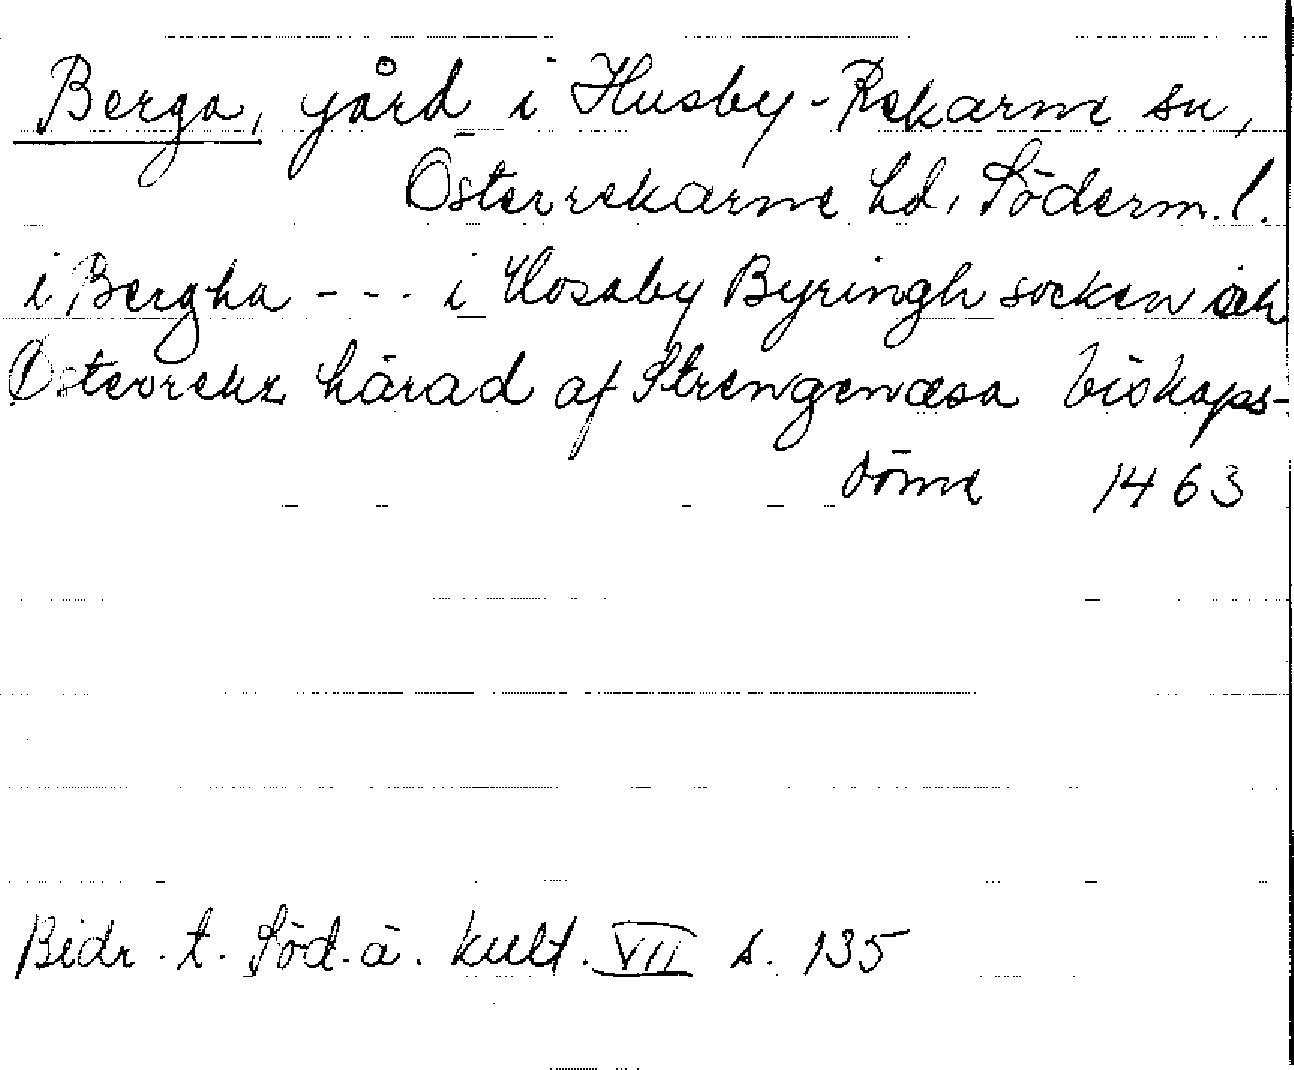 Berga, gård i Husby-Rekarne sn,
Österrekarne hd, Söderm. l.
i Bergha - - - i Hosaby Byringh socken ich
Østerrekz härad af Strengenæsa biskaps-
döme 1463
Bidr. t. Söd. ä. kult. VII s. 135